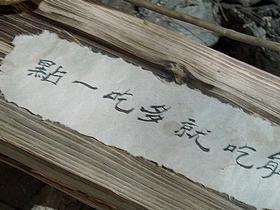 能吃就多吃一點